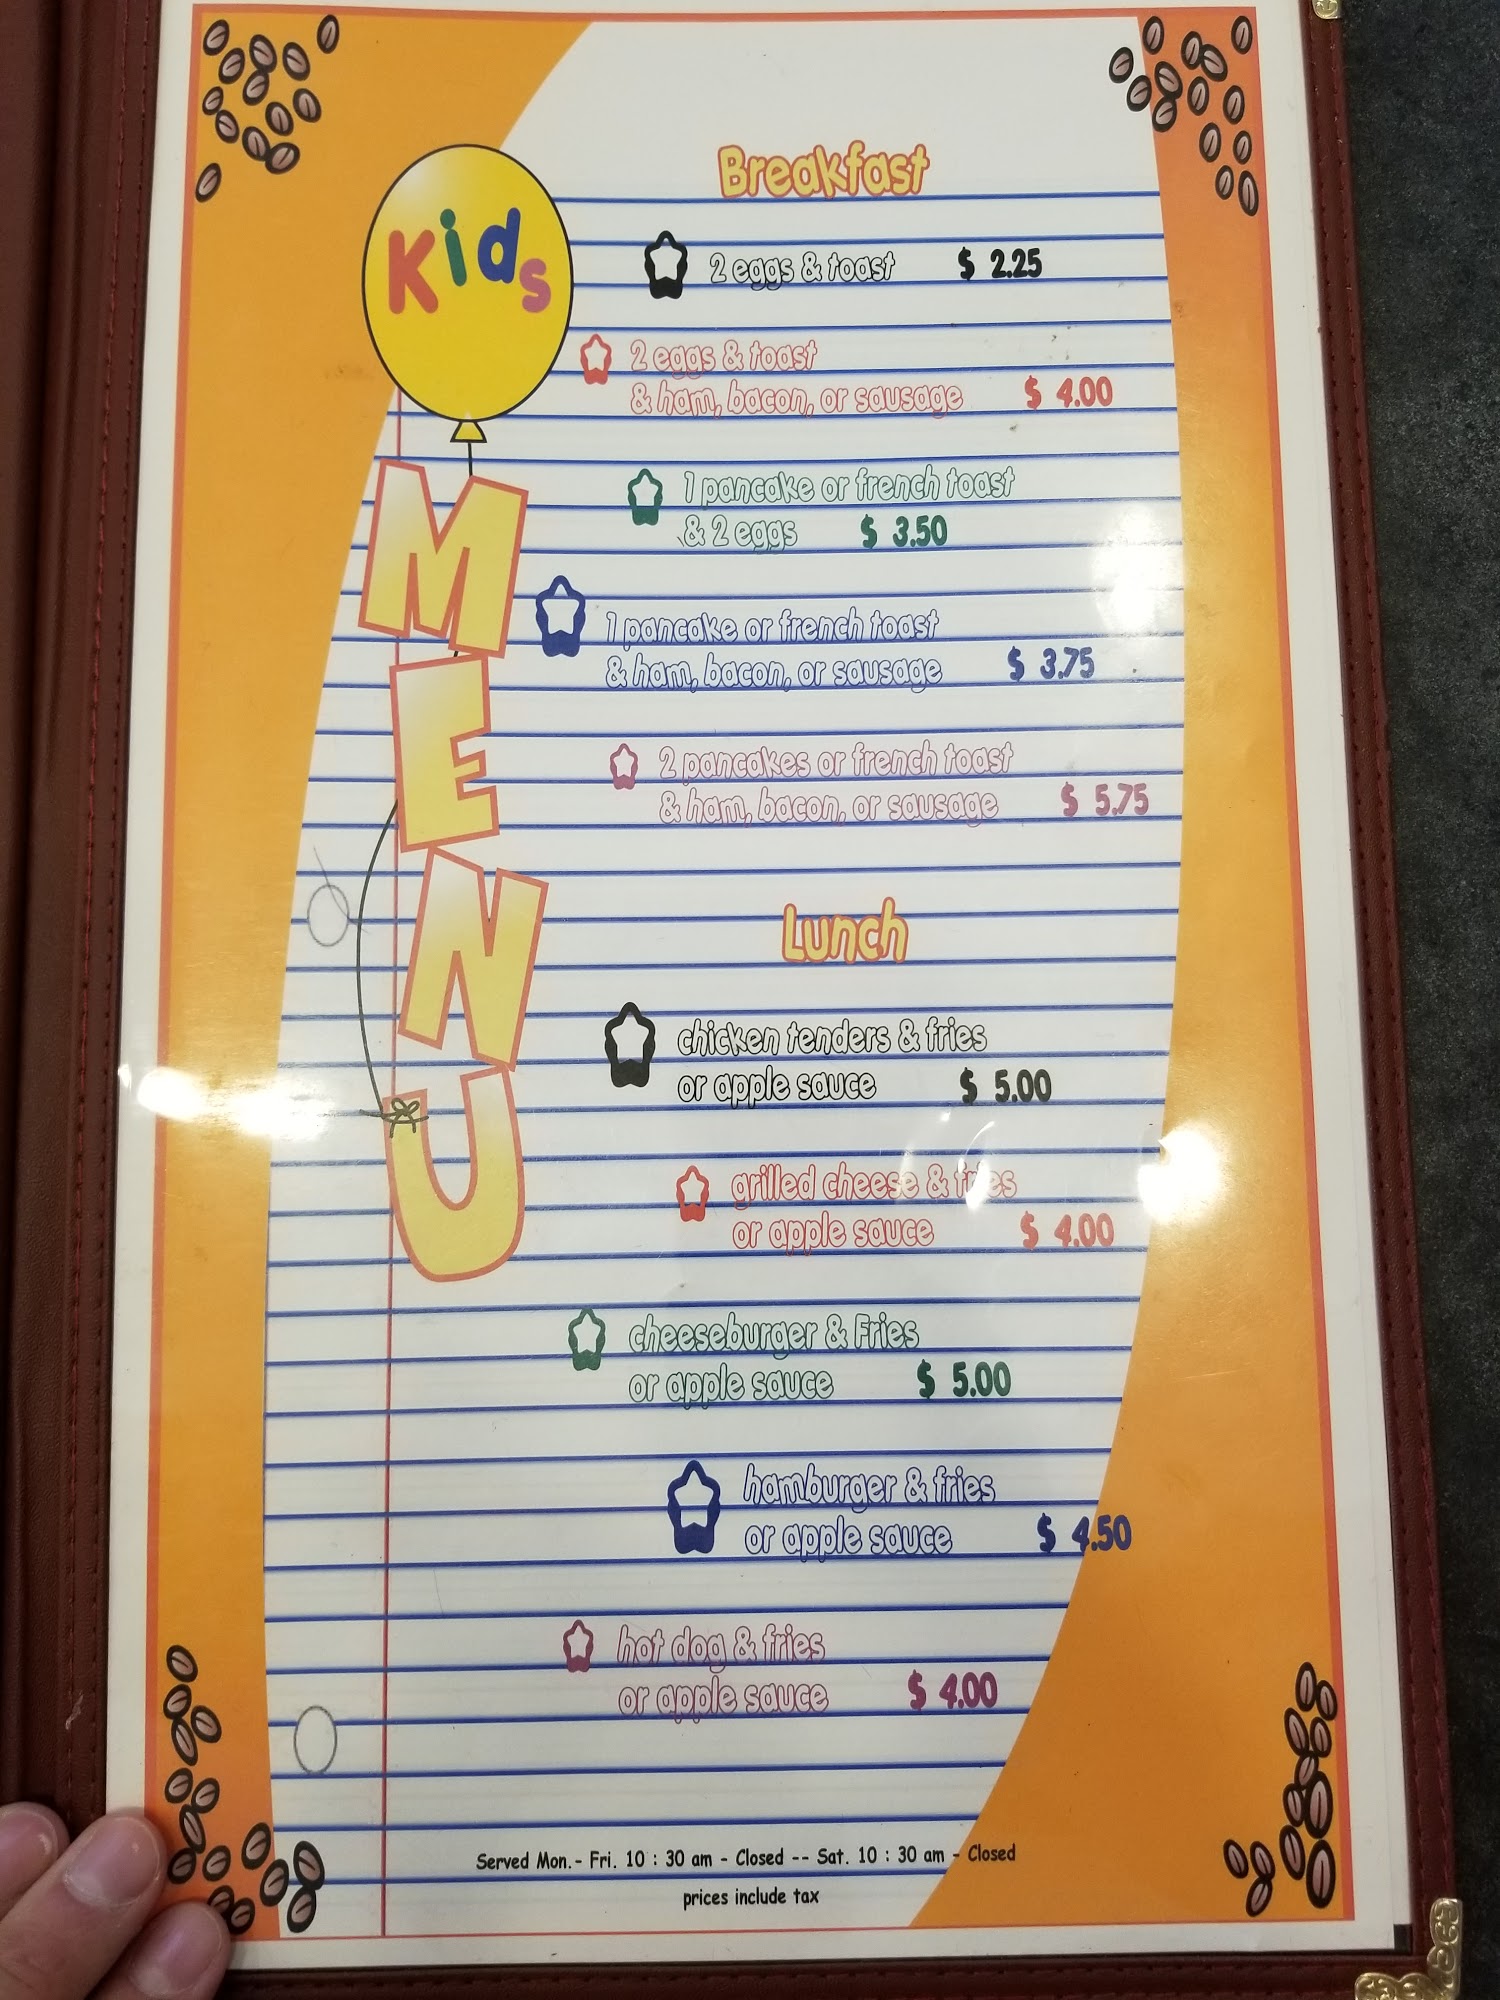 Kids
MENU
Breakfast
2 eggs & toast $ 2.25
2 eggs & toast
& ham, bacon, or sausage $ 4.00
1 pancake or french toast
& 2 eggs $ 3.50
1 pancake or french toast
& ham, bacon, or sausage $ 3.75
2 pancakes or french toast
& ham, bacon, or sausage $ 5.75
Lunch
chicken tenders & fries
or apple sauce $ 5.00
grilled cheese & fries
or apple sauce $ 4.00
cheeseburger & Fries
or apple sauce $ 5.00
hamburger & fries
or apple sauce $ 4.50
hot dog & fries
or apple sauce $ 4.00
Served Mon.- Fri. 10 : 30 am - Closed -- Sat. 10 : 30 am - Closed
prices include tax